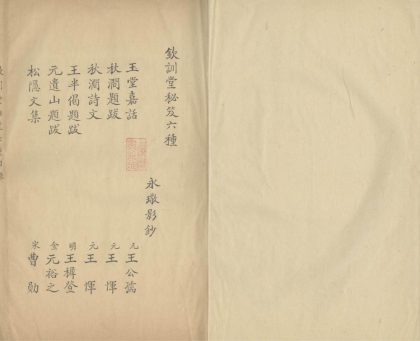 欽訓堂秘笈六種
永璥影鈔
玉堂嘉話 元王公孺
秋澗題跋 元王惲
秋澗詩文 元王惲
王半偈題跋 明王穉登
元遺山題跋 金元裕之
松隱文集 宋曹勛